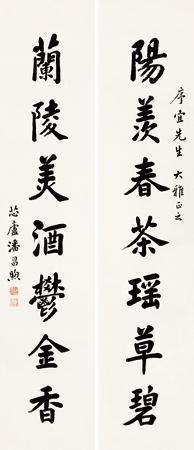 陽羨春茶瑤草碧
序宜先生大雅正之
蘭陵美酒鬱金香
芯廬潘昌煦